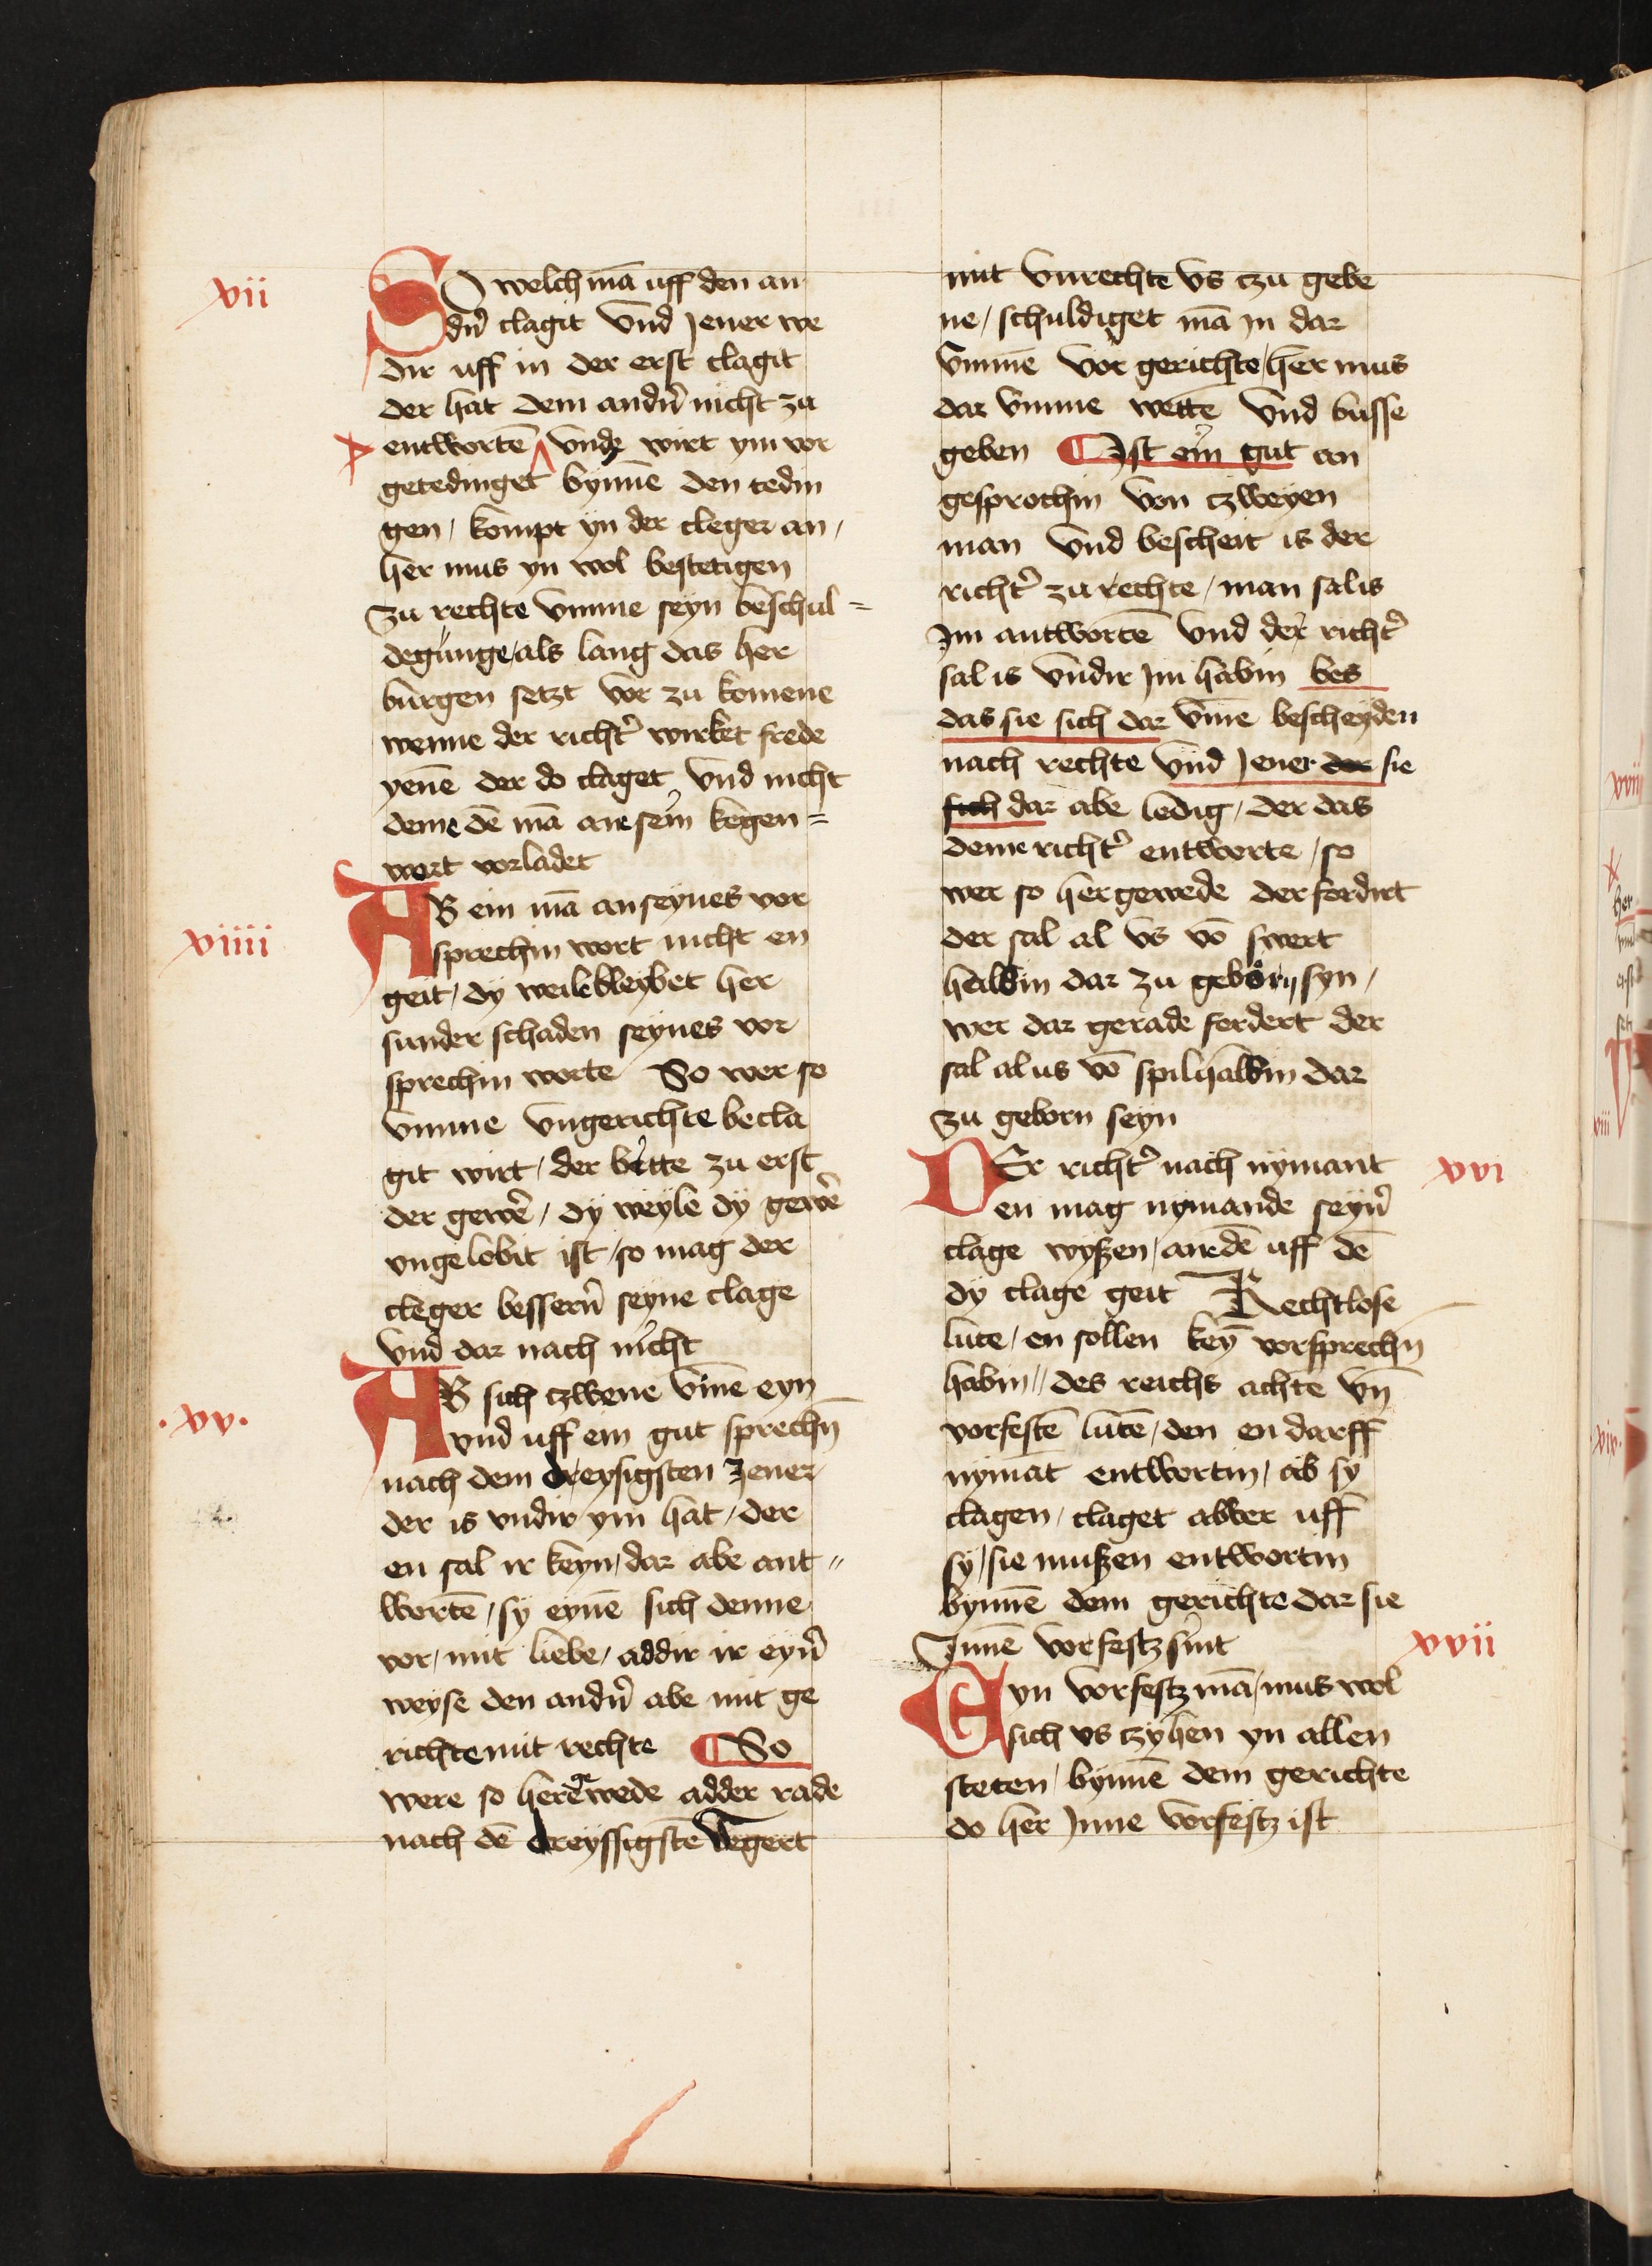 vii
So welch mā uff den an
dn̄ clagit vnd Jener we
dir uff in der erst clagit
der hat dem andn̄ nicht zu
entwortē vnde wirt ym vor
getedinget bynnē den tedin
gen / kompt yn der cleger an /
her mus yn wol bestetigen
zu rechte vmme seyn beschul=
degunge / als lang das her
burgen setzt vor zu komene
wenne der richt' wirket frede
yenē der do claget vnd nicht
deme dē mā ane sein kegen=
wort vorladet
viiii
AB ein mā an seynes vor
sprechin wort nicht en
geit / dy weile bleybet her
sunder schaden seynes vor
sprechin worte So wer so
vmme vngerichte becla
git wirt / der bitte zu erst
der gewē / dy weyle dy gewē
vngelobit ist / so mag der
cleger bessern̄ seyne clage
vnd dar nach nicht
·xv·
AB sich czwene vmē eyn
vnd uff ein gut sprechn̄
nach dem dreysigsten Jener
der is vndir ym hat / der
en sal ir keyn / dar abe ant=
wortē / sy eynē sich denne
vor / mit liebe / addir ir eyn̄
weyse den andn̄ abe mit ge
richte mit rechte So
were so heregewede adder rade
nach dē dreyssigstē wegert
mit vnrechte vs czu gebe
ne / schuldiget mā in dar
vmme vor gerichte / her mus
dar vmme wette vnd busse
geben Ist ein gut an
gesprochin von czweyen
man vnd bescheit is der
richt' zu rechte / man sal is
Im antwortē vnd der richt'
sal is vndir Im habin bes
das sie sich dar vmē bescheyden
nach rechte vnd Jener der sie
sich dar abe ledig / der das
deme richt' entworte / so
wer so hergewede der fordirt
der sal al vs vō swert
halbin dar zu geborn syn /
wer dar gerade fordert der
sal al us vō spilhalbin dar
zu geborn seyn
xvi
DEr richt' nach nymant
en mag nymande seyn̄
clage wyszen / ane dē uff dē
dy clage geit Rechtlose
lute / en sollen keȳ vorsprechn̄
habin // des reichs achte vn̄
vorfestē lutē / den en darff
nymāt entwortin / ab sy
clagen / claget abber uff
sy / sie muszen entwortin
bynnē dem gerichte dar sie
Innē vorfestz sint
xvii
Eyn vorfestz mā / mus wol
sich vs czyhen yn allen
steten / bynnē dem gerichte
do her Inne vorfestz ist